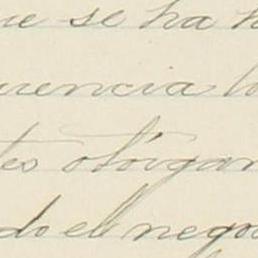 ue se ha h
uencia lo
tes otorgan
do el nego